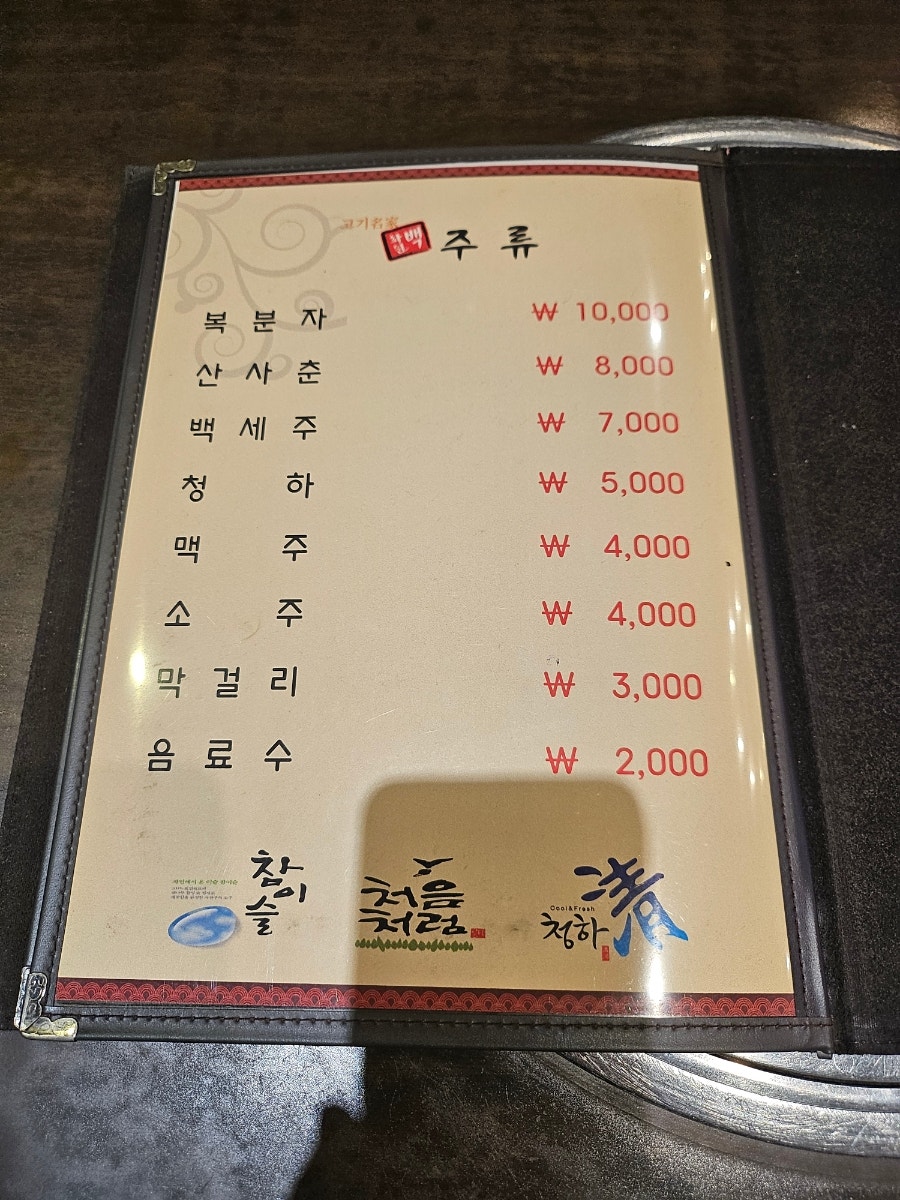 고기名家
백
주 류
복 분 자 ₩ 10,000
산 사 춘 ₩ 8,000
백 세 주 ₩ 7,000
청 하 ₩ 5,000
맥 주 ₩ 4,000
소 주 ₩ 4,000
막 걸 리 ₩ 3,000
음 료 수 ₩ 2,000
참이슬
처음
처럼
Cool&Fresh
청하